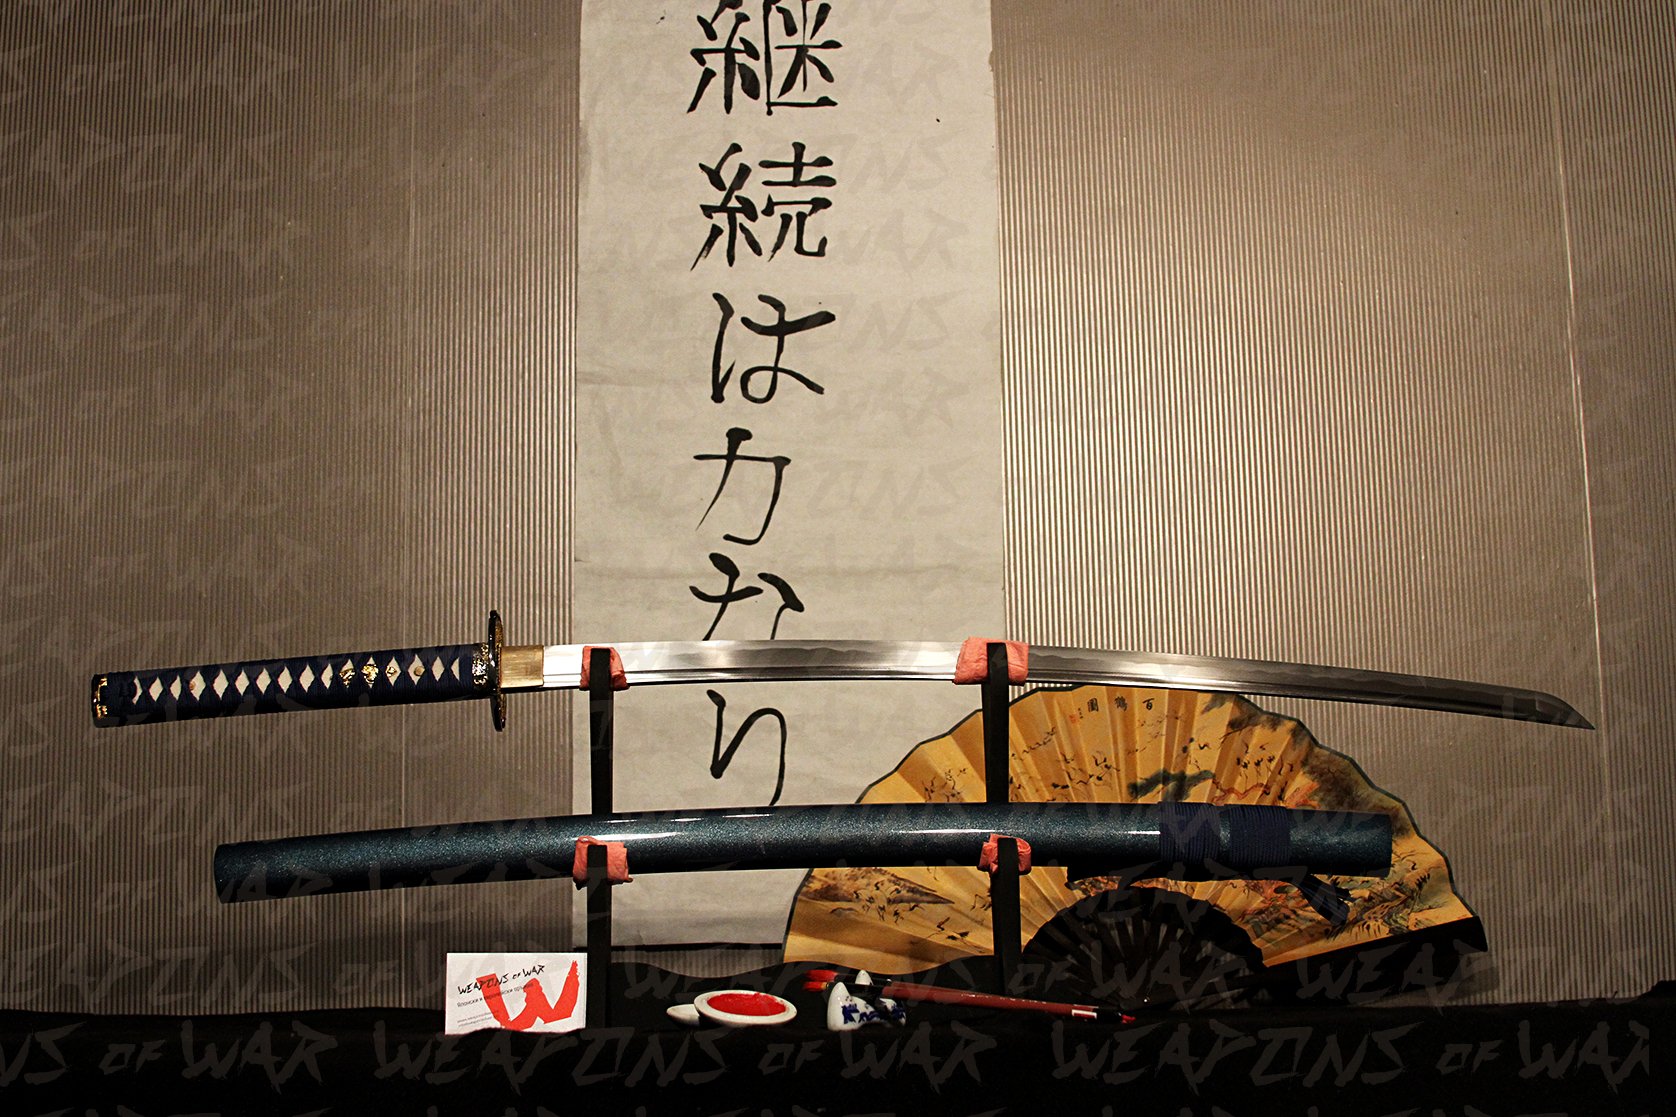 継続は力なり
百鶴圖
WEAPONS OF WAR
Японски и
WEAPONS OF WAR WEAPONS OF WAR